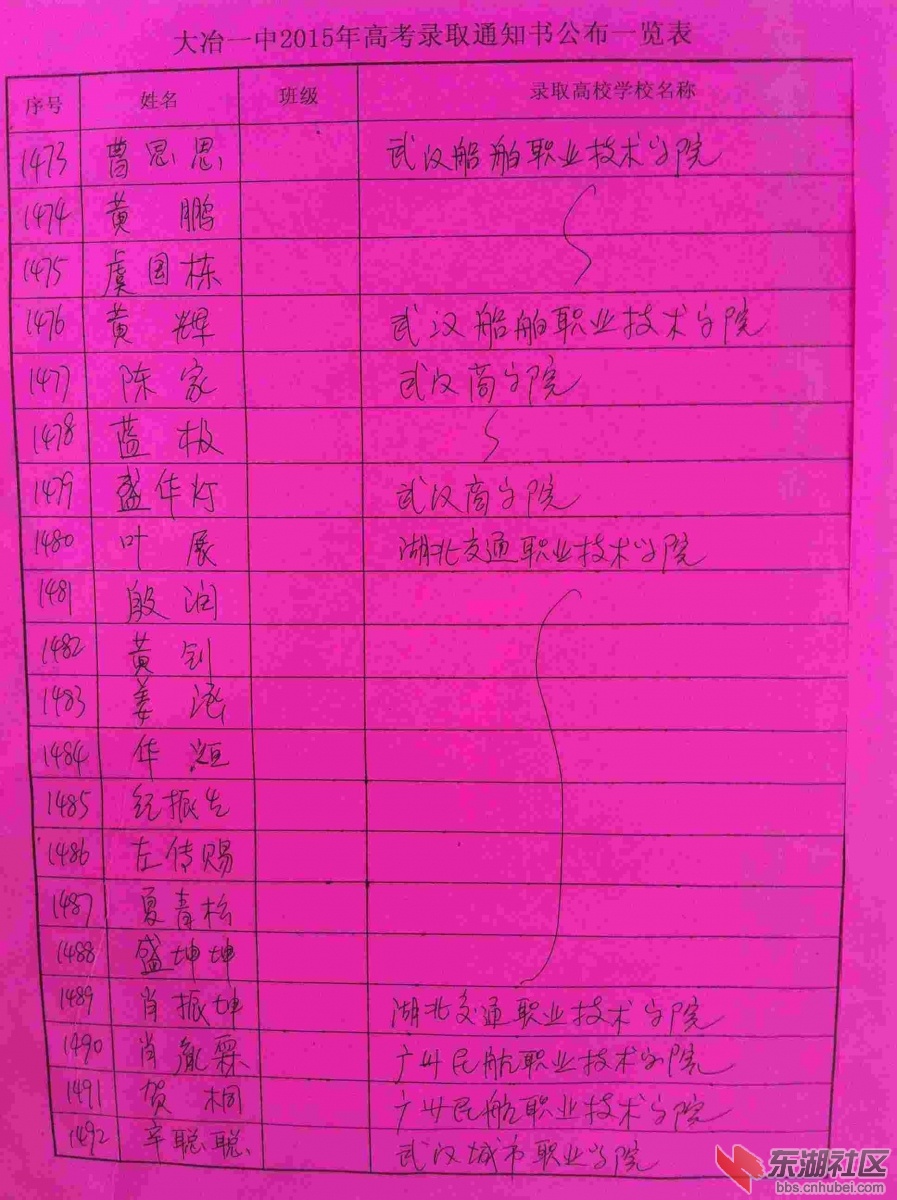 大冶一中2015年高考录取通知书公布一览表
序号 姓名 班级 录取高校学校名称
1473 曹思思 武汉船舶职业技术学院
1474 黄鹏
1475 虞国栋
1476 黄辉 武汉船舶职业技术学院
1477 陈家 武汉商学院
1478 蓝极
1479 盛华灯 武汉商学院
1480 叶展 湖北交通职业技术学院
1481 殷润
1482 黄钊
1483 姜
1484 华
1485 纪振生
1486 左传赐
1487 夏青松
1488 盛坤坤
1489 肖振坤 湖北交通职业技术学院
1490 肖胤霖 广州民航职业技术学院
1491 贺桐 广州民航职业技术学院
1492 辛聪聪 武汉城市职业学院
东湖社区
bbs.cnhubei.com